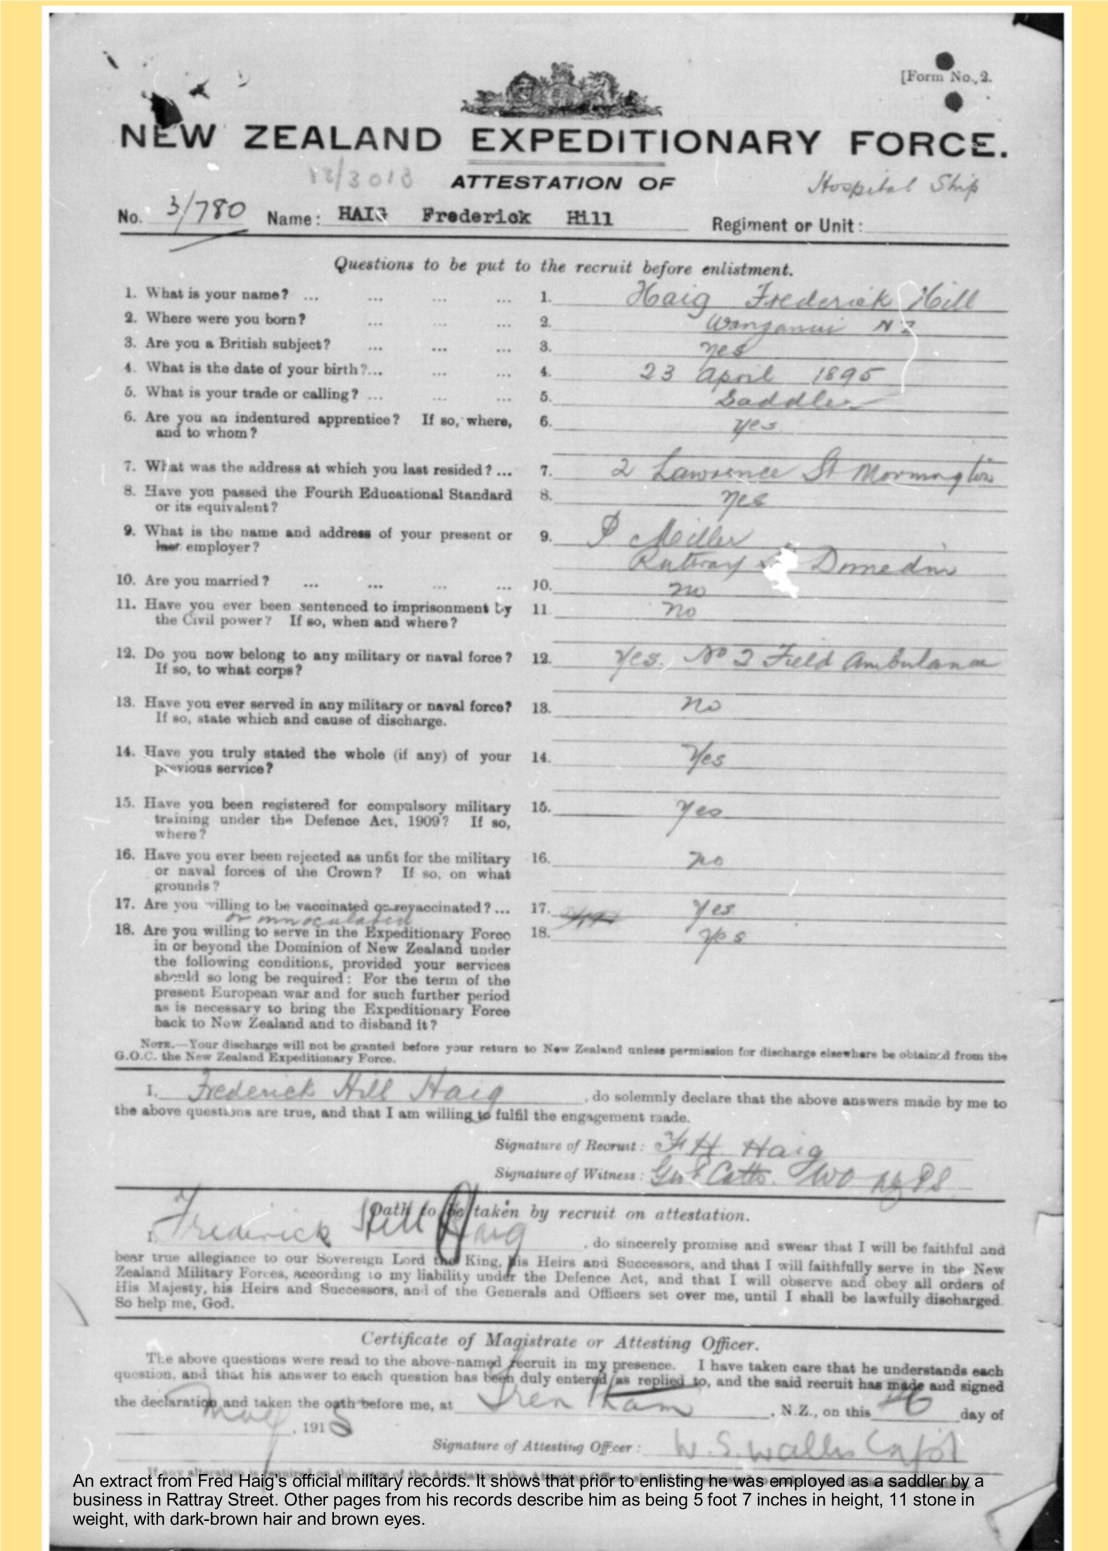 [Form No. 2.
NEW ZEALAND EXPEDITIONARY FORCE.
13/3018
ATTESTATION OF
Hospital Ship
No. 3/780 Name: HAIG Frederick Hill Regiment or Unit:
Questions to be put to the recruit before enlistment.
1. What is your name? ... ... ... ... 1. Haig Frederick Hill
2. Where were you born? ... ... ... 2. Wanganui NZ
3. Are you a British subject? ... ... ... 3. Yes
4. What is the date of your birth?... ... ... 4. 23 April 1895
5. What is your trade or calling? ... ... ... 5. Saddler
6. Are you an indentured apprentice? If so, where, 6. Yes
and to whom?
7. What was the address at which you last resided? ... 7. 2 Lawrence St Mornington
8. Have you passed the Fourth Educational Standard 8. Yes
or its equivalent?
9. What is the name and address of your present or 9. P Miller
last employer? Rattray Dunedin
10. Are you married? ... ... ... ... 10. no
11. Have you ever been sentenced to imprisonment by 11 no
the Civil power? If so, when and where?
12. Do you now belong to any military or naval force? 12. Yes. No 2 Field Ambulance
If so, to what corps?
13. Have you ever served in any military or naval force? 13. no
If so, state which and cause of discharge.
14. Have you truly stated the whole (if any) of your 14. Yes
previous service?
15. Have you been registered for compulsory military 15. Yes
training under the Defence Act, 1909? If so,
where?
16. Have you ever been rejected as unfit for the military 16. no
or naval forces of the Crown? If so, on what
grounds?
17. Are you willing to be vaccinated or revaccinated? ... 17. Yes
or innoculated
18. Are you willing to serve in the Expeditionary Force 18. Yes
in or beyond the Dominion of New Zealand under
the following conditions, provided your services
should so long be required: For the term of the
present European war and for such further period
as is necessary to bring the Expeditionary Force
back to New Zealand and to disband it?
NOTE.—Your discharge will not be granted before your return to New Zealand unless permission for discharge elsewhere be obtained from the
G.O.C. the New Zealand Expeditionary Force.
I, Frederick Hill Haig, do solemnly declare that the above answers made by me to
the above questions are true, and that I am willing to fulfil the engagement made.
Signature of Recruit: F H Haig
Signature of Witness: WO
Oath to be taken by recruit on attestation.
I, Frederick Hill Haig, do sincerely promise and swear that I will be faithful and
bear true allegiance to our Sovereign Lord the King, his Heirs and Successors, and that I will faithfully serve in the New
Zealand Military Forces, according to my liability under the Defence Act, and that I will observe and obey all orders of
His Majesty, his Heirs and Successors, and of the Generals and Officers set over me, until I shall be lawfully discharged.
So help me, God.
Certificate of Magistrate or Attesting Officer.
The above questions were read to the above-named recruit in my presence. I have taken care that he understands each
question, and that his answer to each question has been duly entered as replied to, and the said recruit has made and signed
the declaration and taken the oath before me, at Trentham, N.Z., on this day of
May, 1915
Signature of Attesting Officer: W. S. Wallis Capt
An extract from Fred Haig's official military records. It shows that prior to enlisting he was employed as a saddler by a
business in Rattray Street. Other pages from his records describe him as being 5 foot 7 inches in height, 11 stone in
weight, with dark-brown hair and brown eyes.